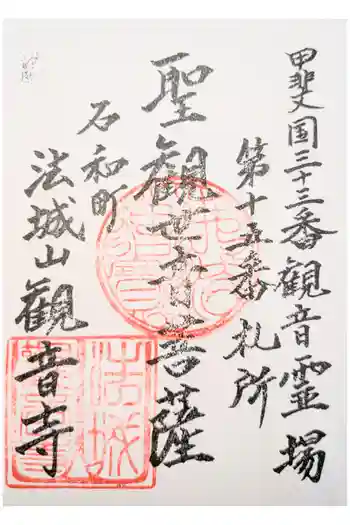 甲斐国三十三番観音霊場
第十五番札所
聖観世音菩薩
石和町
法城山観音寺